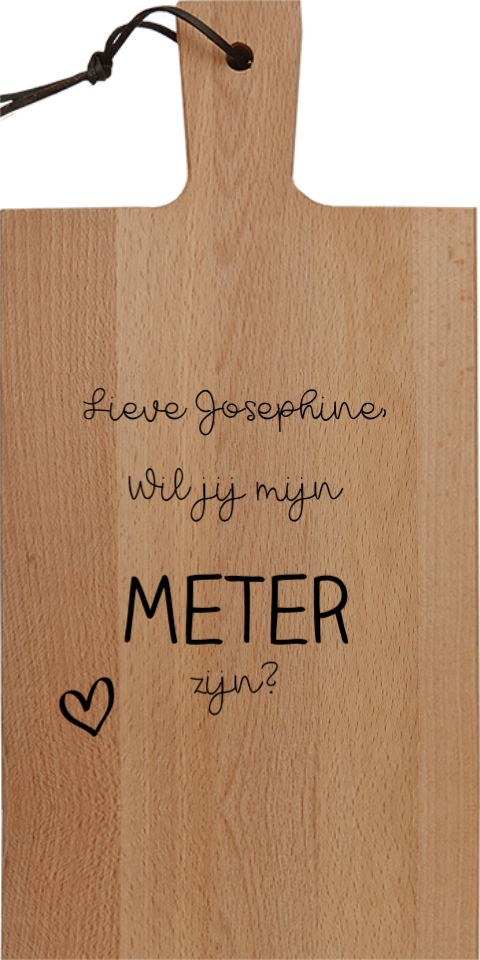 Lieve Josephine,
Wil jij mijn
METER
zijn?